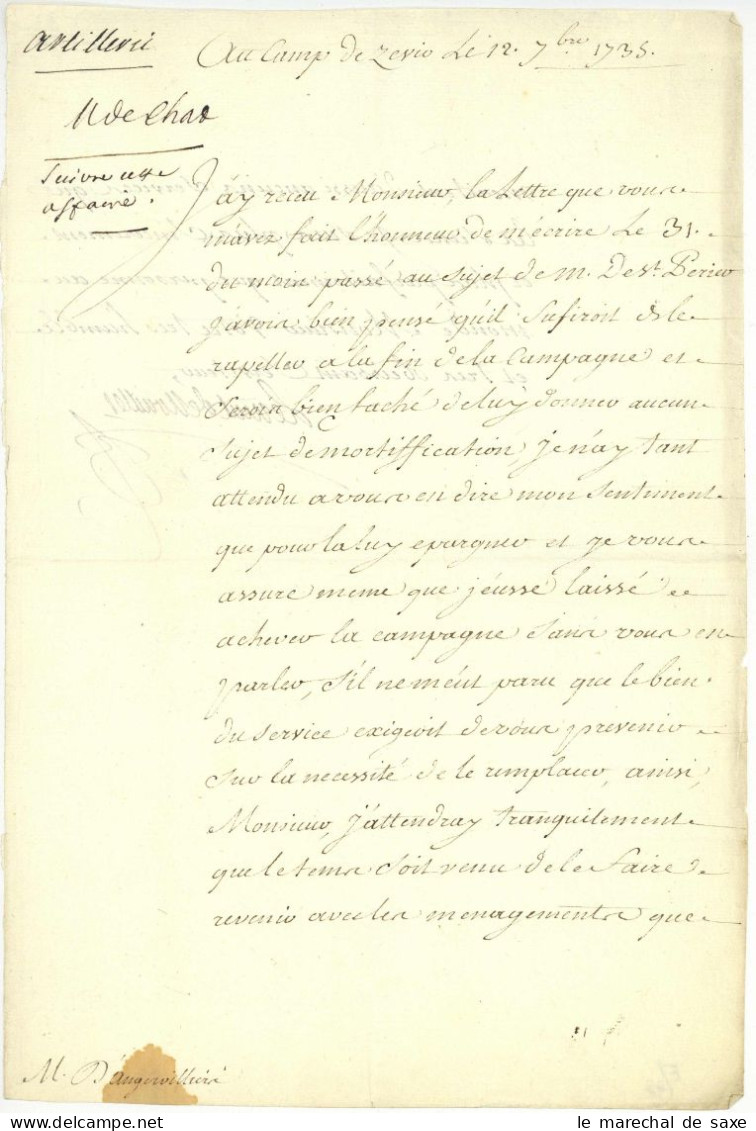 Artillerie
Au Camp de Zevio Le 12. 7bre 1735.
M de Chas
Suivre cette
affaire.
J'ay receu Monsieur, la Lettre que vous
mavez fait l'honneur de m'ecrire Le 31.
du mois passé au sujet de m. De St. Perier
J'avois bien pensé qu'il sufiroit de le
rapeller a la fin de la Campagne et
serois bien faché de luy donner aucun
sujet de mortiffication, Je n'ay tant
attendu a vous en dire mon sentiment
que pour la luy epargner et je vous
assure meme que j'eusse laissé
achever la campagne sans vous en
parler, s'il ne m'eut paru que le bien
du service exigeoit de vous prevenir
sur la necessité de le remplacer, ainsi,
Monsieur, j'attendray tranquilement
que le tems soit venu de le faire
revenir avec les menagements que
M. D'angervilliers
le marechal de saxe